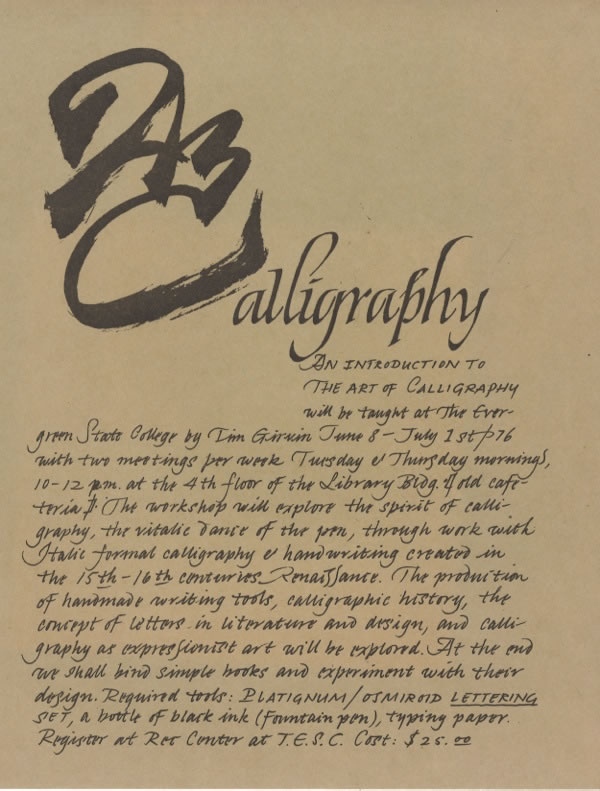 AB
Calligraphy
AN INTRODUCTION TO
THE ART OF CALLIGRAPHY
will be taught at The Ever-
green State College by Tim Girvin June 8 - July 1st / 76
with two meetings per week Tuesday & Thursday mornings,
10-12 pm. at the 4th floor of the Library Bldg. (old cafe-
teria). The workshop will explore the spirit of calli-
graphy, the vitalic dance of the pen, through work with
Italic formal calligraphy & handwriting created in
the 15th - 16th centuries Renaissance. The production
of handmade writing tools, calligraphic history, the
concept of letters in literature and design, and calli-
graphy as expressionist art will be explored. At the end
we shall bind simple books and experiment with their
design. Required tools: PLATIGNUM/OSMIROID LETTERING
SET, a bottle of black ink (fountain pen), typing paper.
Register at Rec Center at T.E.S.C. Cost: $25.00